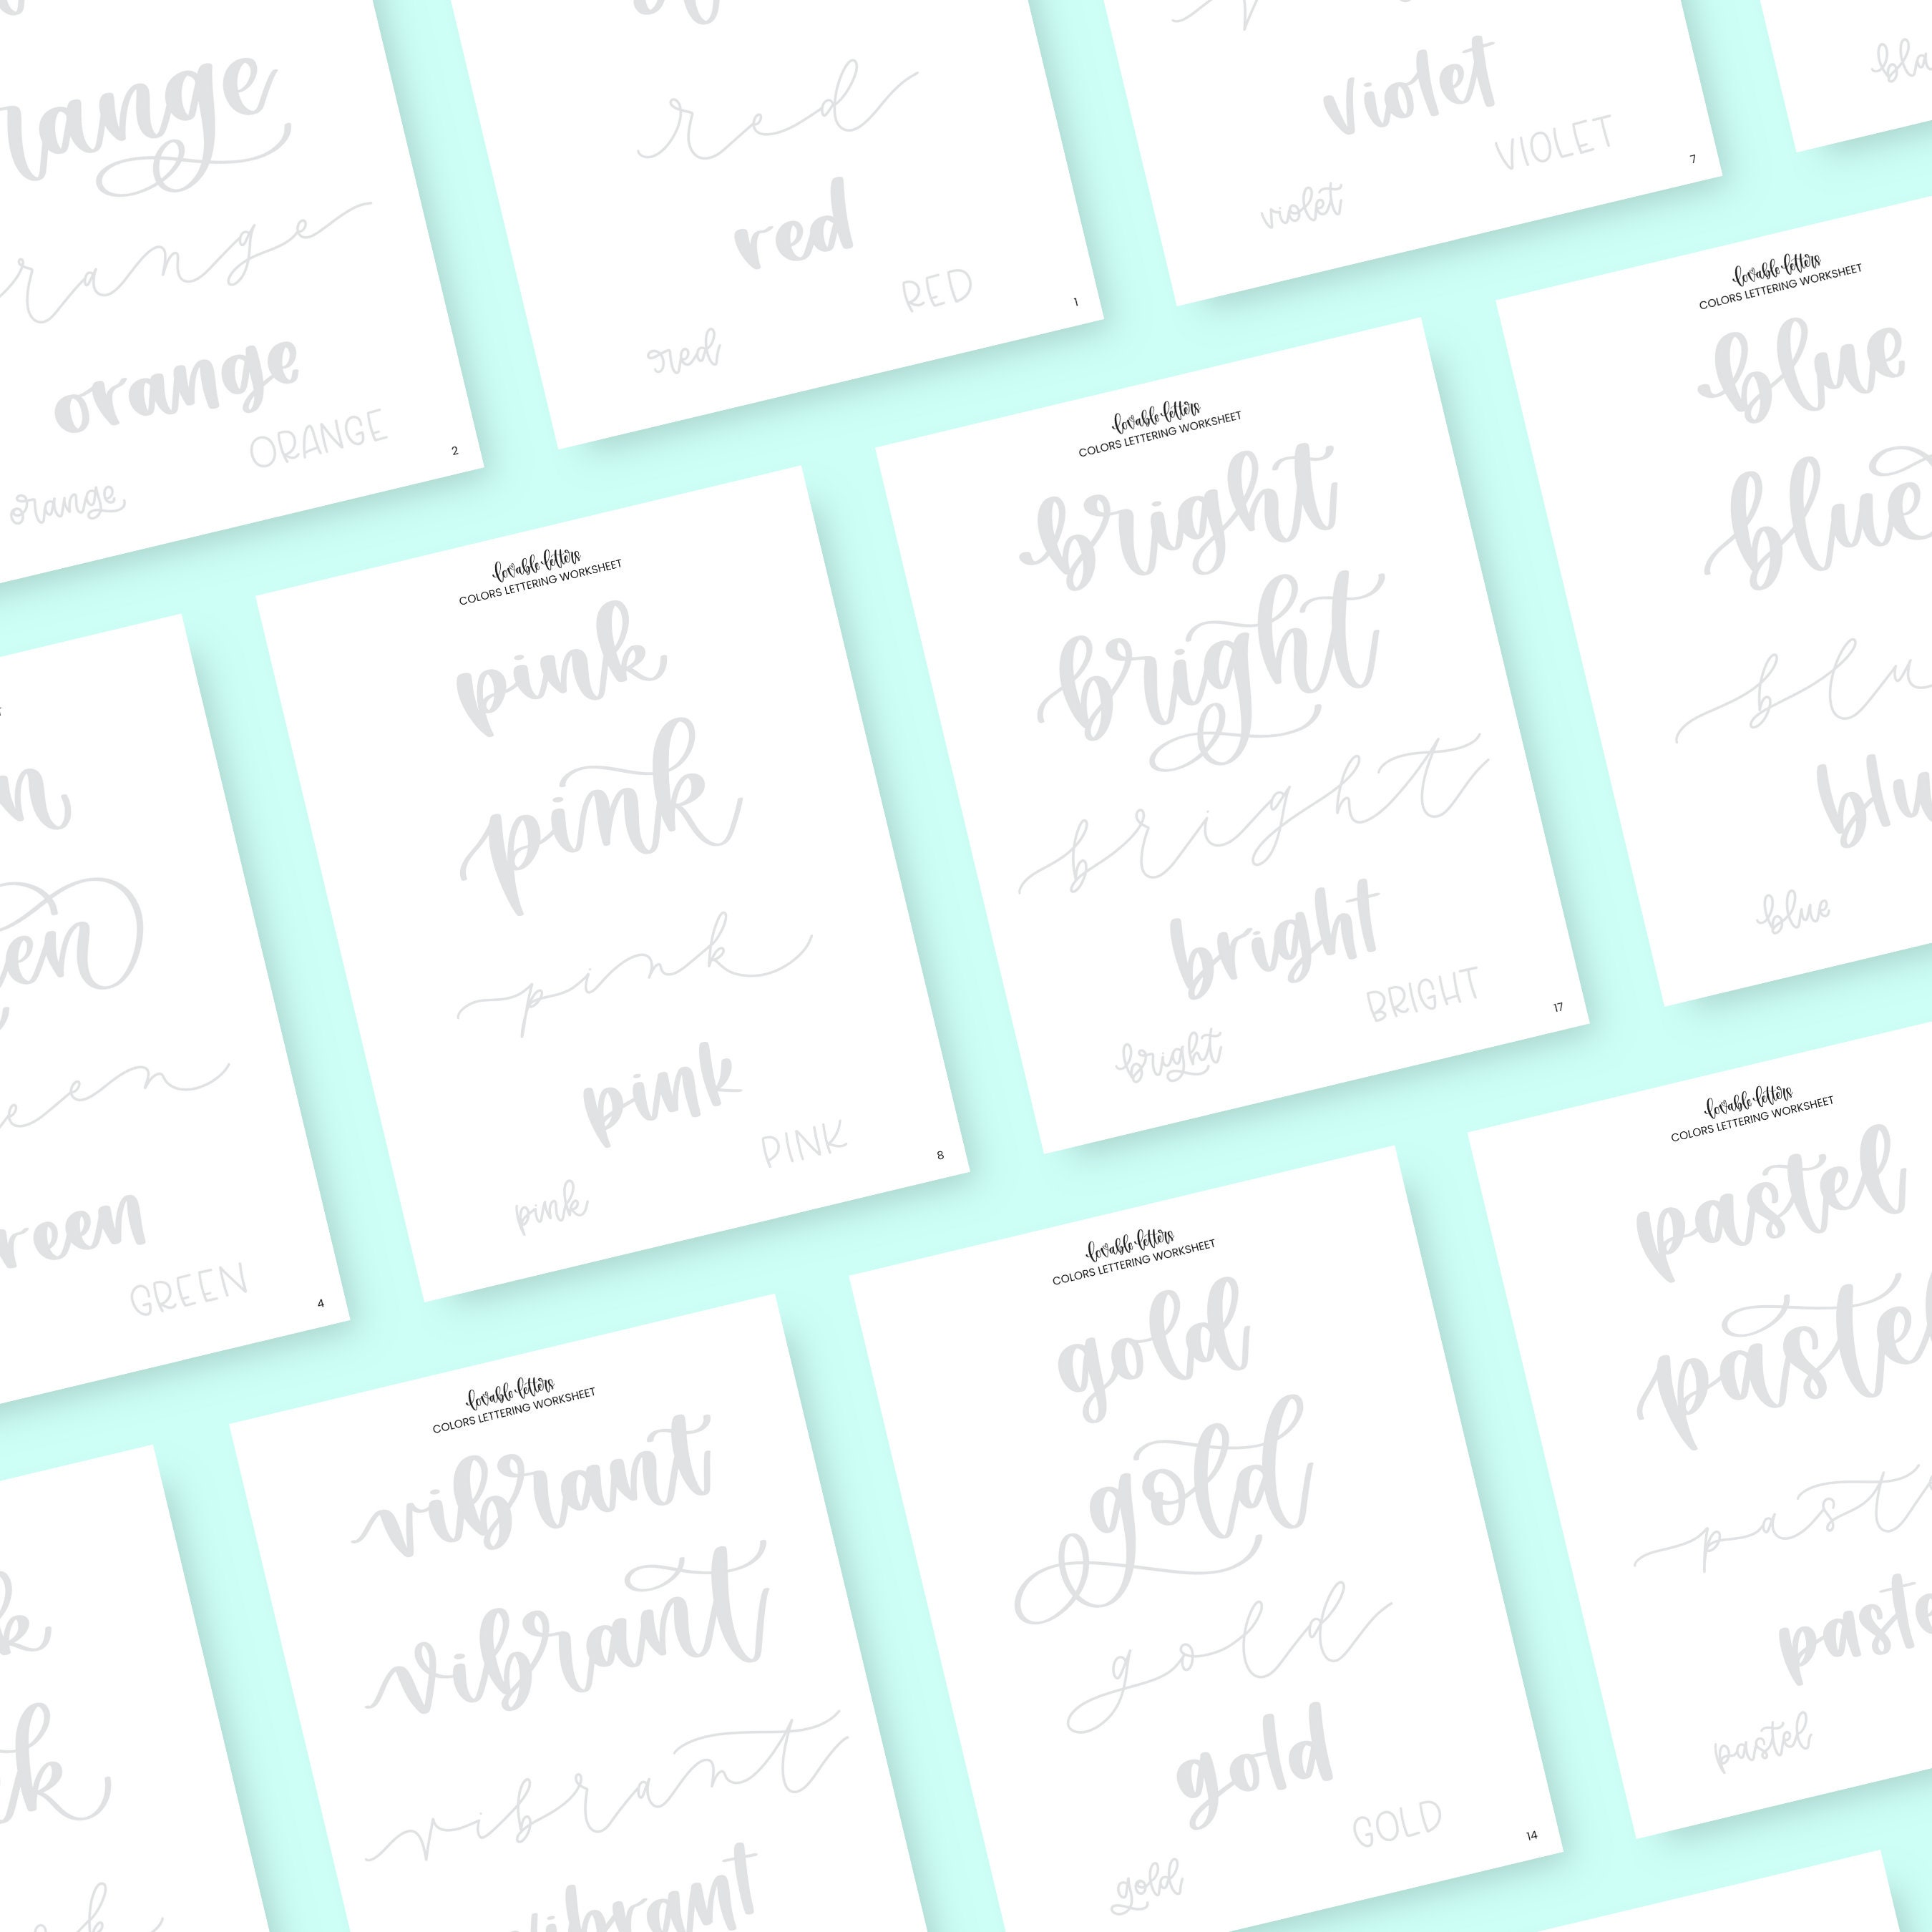 range
range
orange
ORANGE
orange
2
red
red
RED
red
1
violet
VIOLET
violet
7
bla
lovable letters
COLORS LETTERING WORKSHEET
blue
blue
blu
blu
blue
lovable letters
COLORS LETTERING WORKSHEET
bright
bright
bright
bright
BRIGHT
bright
17
lovable letters
COLORS LETTERING WORKSHEET
pink
pink
pink
pink
PINK
pink
8
n
en
een
reen
GREEN
4
lovable letters
COLORS LETTERING WORKSHEET
pastel
pastel
past
paste
pastel
lovable letters
COLORS LETTERING WORKSHEET
gold
gold
gold
gold
GOLD
gold
14
lovable letters
COLORS LETTERING WORKSHEET
vibrant
vibrant
vibrant
vibrant
k
k
k